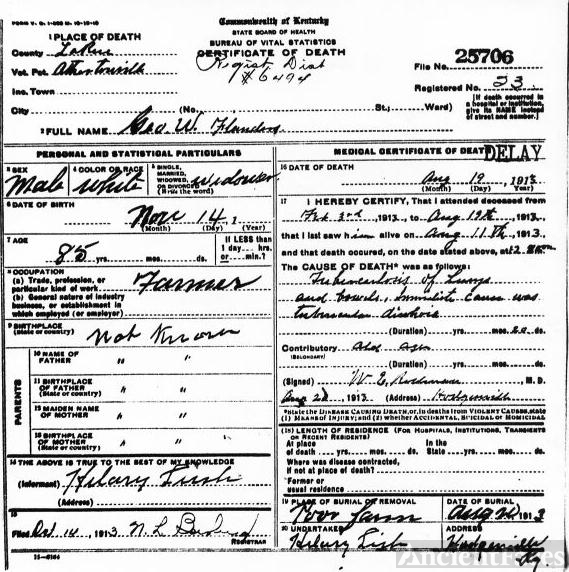 FORM V. S. 1-
Commonwealth of Kentucky
STATE BOARD OF HEALTH
BUREAU OF VITAL STATISTICS
CERTIFICATE OF DEATH
Regist Dist
#6494
1 PLACE OF DEATH
County LaRue
Vot. Pct. Athertonville
Inc. Town
City (No. St.; Ward)
File No. 25706
Registered No. 23
(If death occurred in a hospital or institution, give its NAME instead of street and number.)
2 FULL NAME Geo W. Flanders
PERSONAL AND STATISTICAL PARTICULARS
3 SEX Male
4 COLOR OR RACE White
5 SINGLE, MARRIED, WIDOWED, OR DIVORCED (Write the word) Widower
6 DATE OF BIRTH Nov 14, 1
(Month) (Day) (Year)
7 AGE 85 yrs. mos. ds.
If LESS than 1 day, hrs. or min.?
8 OCCUPATION
(a) Trade, profession, or particular kind of work Farmer
(b) General nature of industry business, or establishment in which employed (or employer)
9 BIRTHPLACE (State or country) Not Known
PARENTS
10 NAME OF FATHER " "
11 BIRTHPLACE OF FATHER (State or country) " "
12 MAIDEN NAME OF MOTHER " "
13 BIRTHPLACE OF MOTHER (State or country) " "
14 THE ABOVE IS TRUE TO THE BEST OF MY KNOWLEDGE
(Informant) Hilary Lush
(Address)
15
Filed Oct 14, 1913 N. L.
REGISTRAR
MEDICAL CERTIFICATE OF DEATH
DELAY
16 DATE OF DEATH
Aug 19, 1913
(Month) (Day) (Year)
17 I HEREBY CERTIFY, That I attended deceased from
Feb 3rd, 1913, to Aug 19th, 1913,
that I last saw him alive on Aug 11th, 1913,
and that death occured, on the date stated above, at 12 m.
The CAUSE OF DEATH* was as follows:
Tuberculosis of Lungs
and bowels, immediate cause was
tubercular
(Duration) yrs. mos. ds.
Contributory Old Age
(SECONDARY)
(Duration) yrs. mos. ds.
(Signed) W E M. D.
Aug 2, 1913 (Address) Hodgenville
*State the DISEASE CAUSING DEATH, or, in deaths from VIOLENT CAUSES, state (1) MEANS OF INJURY; and (2) whether ACCIDENTAL, SUICIDAL or HOMICIDAL
(18) LENGTH OF RESIDENCE (FOR HOSPITALS, INSTITUTIONS, TRANSIENTS OR RECENT RESIDENTS)
At place of death yrs. mos. ds. In the State yrs. mos. ds.
Where was disease contracted, if not at place of death?
Former or usual residence
19 PLACE OF BURIAL OR REMOVAL Poor Farm
DATE OF BURIAL Aug 20, 1913
20 UNDERTAKER Hilary Lush
ADDRESS Hodgenville Ky.
AncientFaces